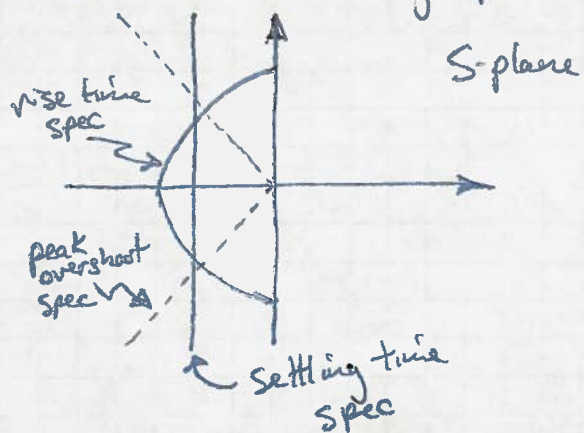 S-plane
rise time
spec
peak
overshoot
spec
settling time
spec